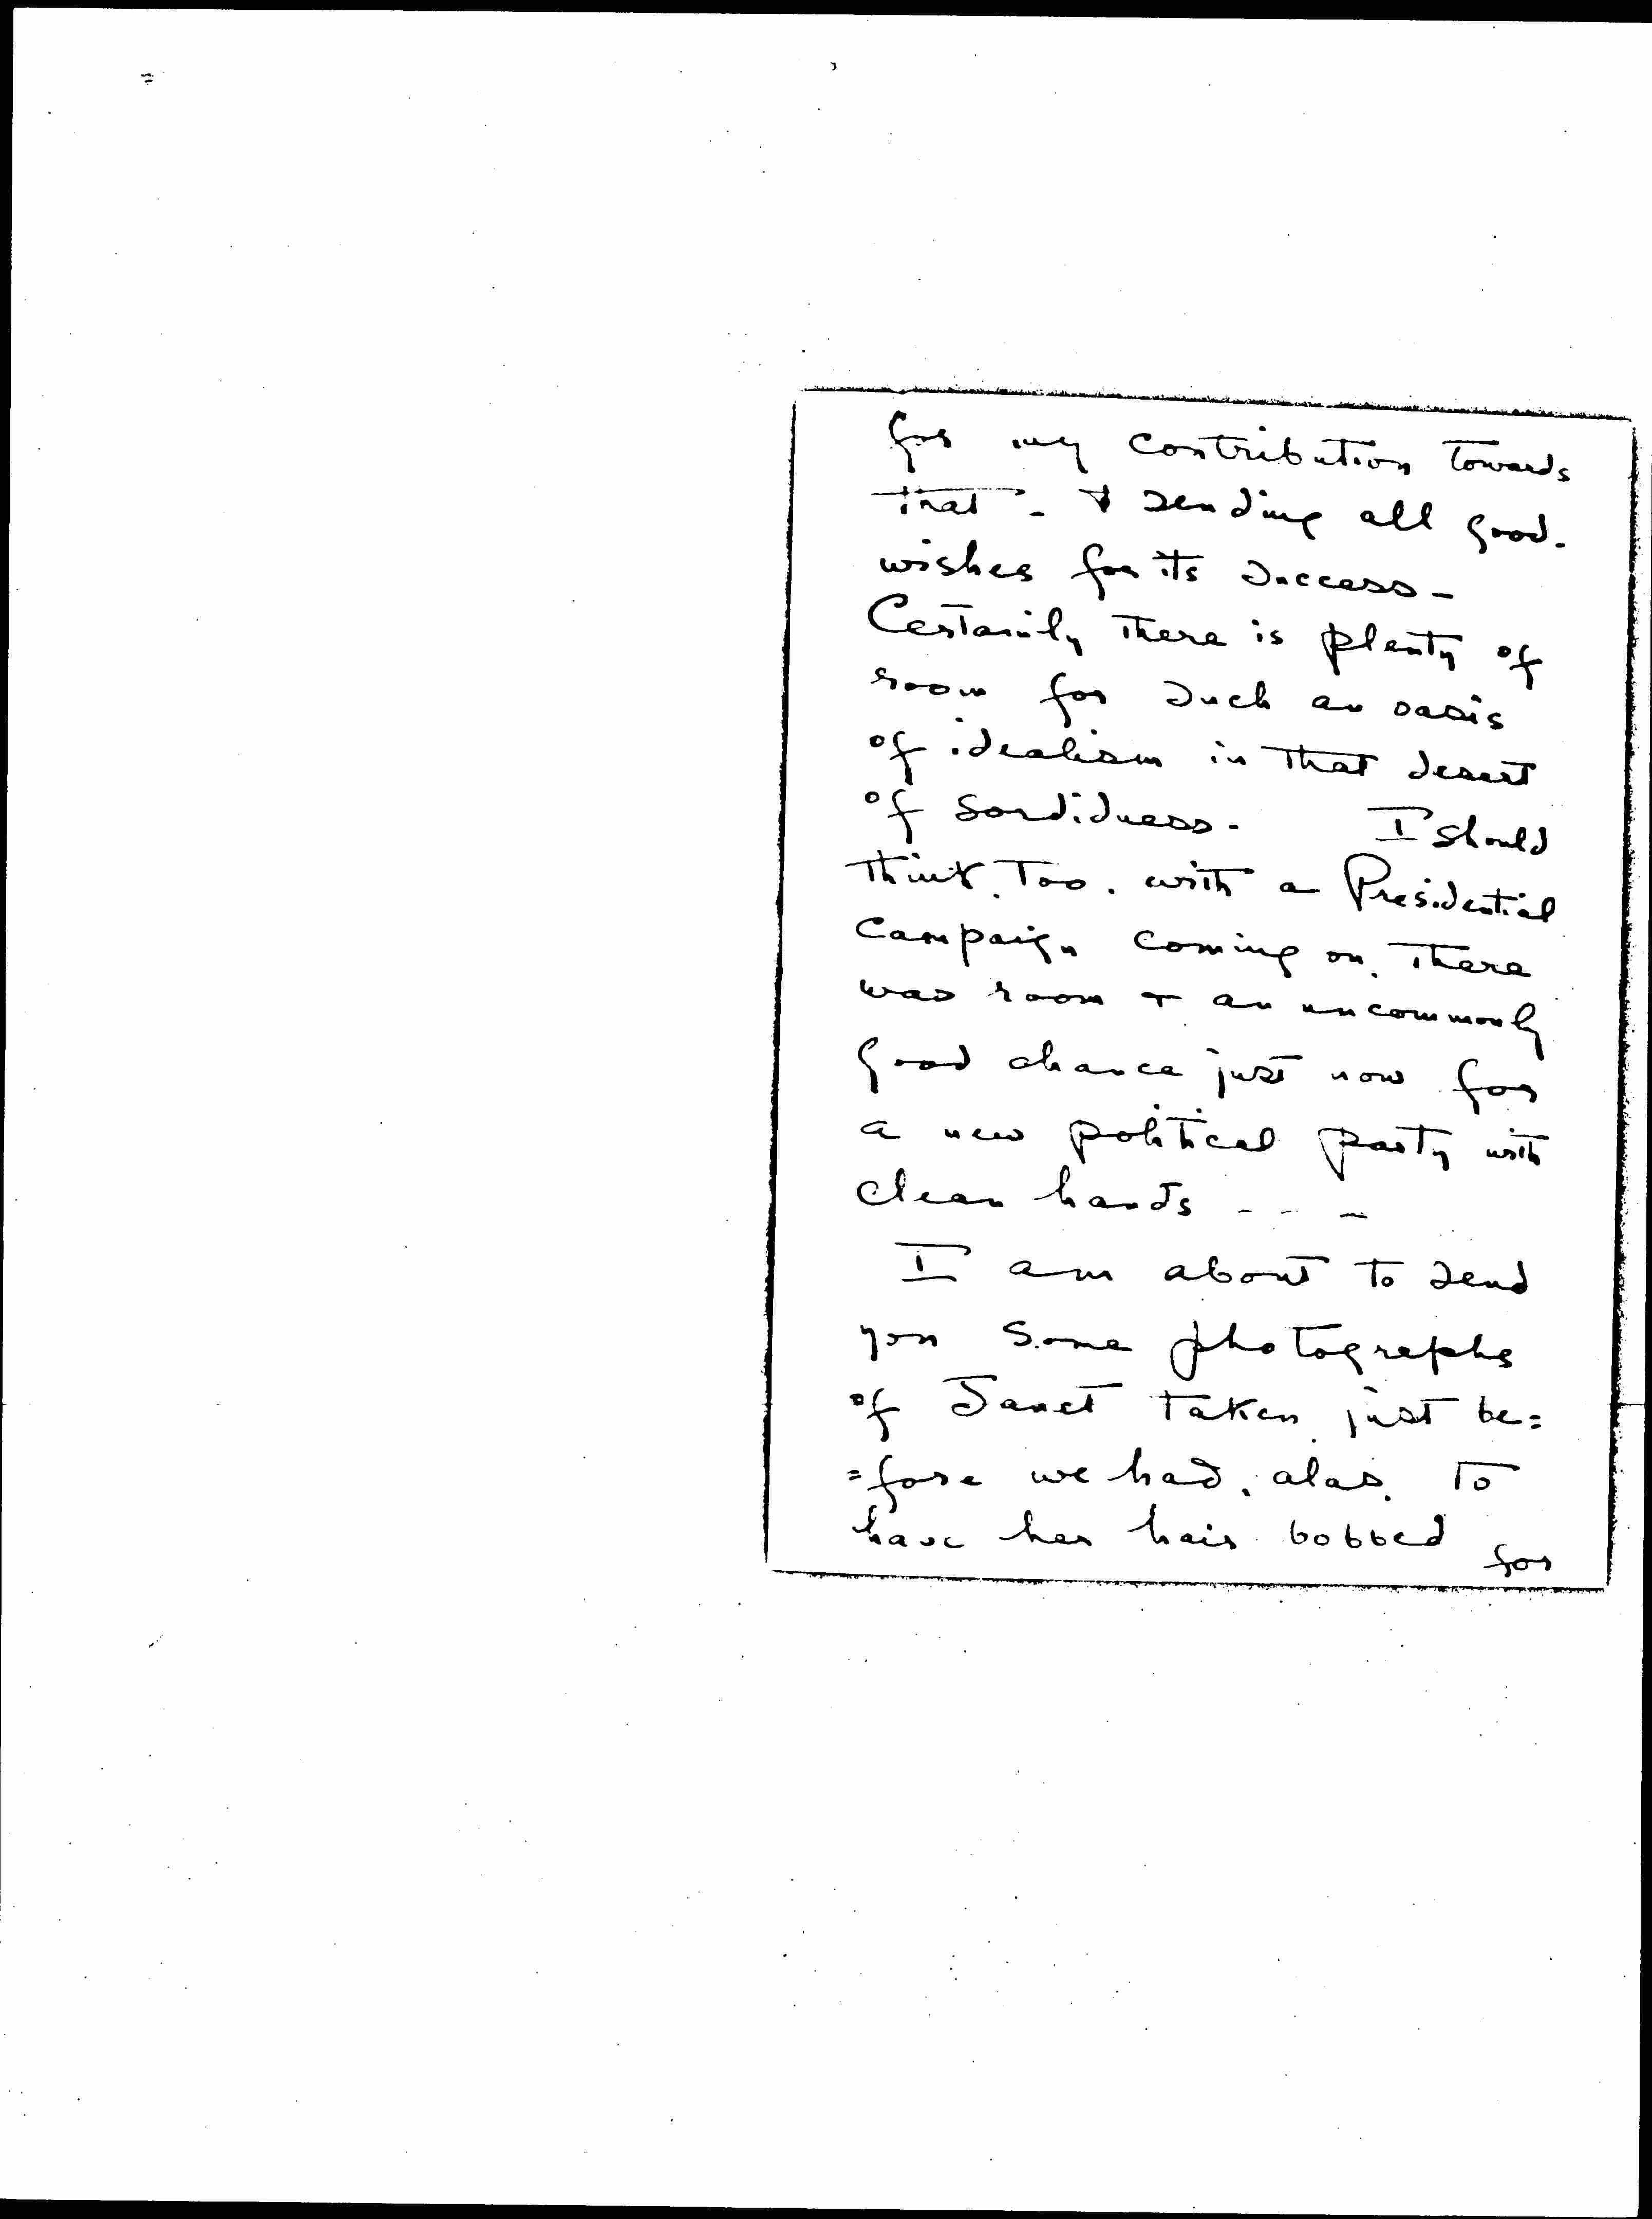 for my contribution towards
that - & sending all good-
wishes for its success -
Certainly there is plenty of
room for such an oasis
of idealism in that desert
of sordidness - I should
think, too, with a Presidential
campaign coming on, there
was room & an uncommonly
good chance just now for
a new political party with
clean hands - - -
I am about to send
you some photographs
of Janet taken just be=
=fore we had, alas, to
have her hair bobbed for